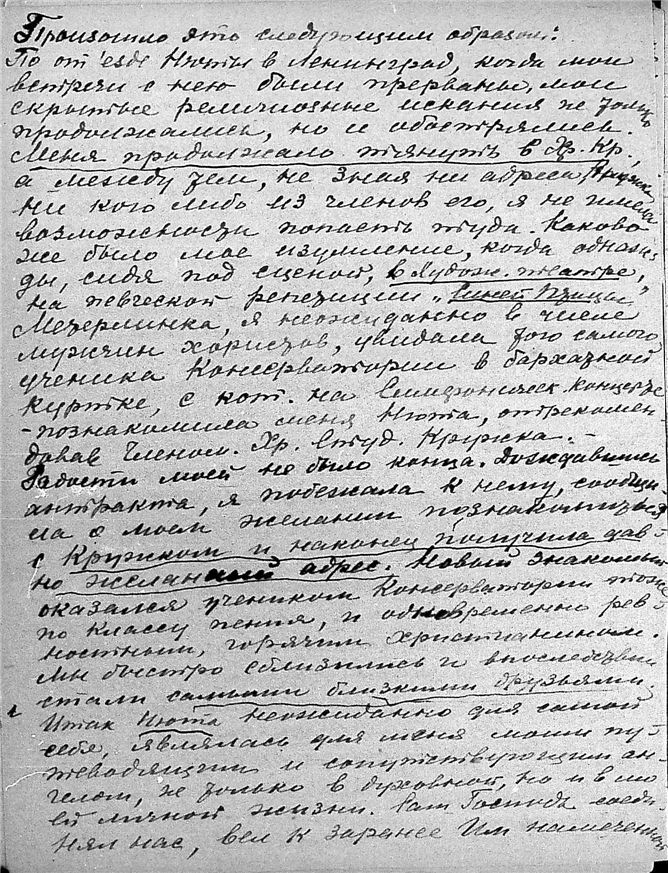 Произошло это следующим образом:
По от'езде Нюты в Ленинград, когда мои
встречи с нею были прерваны, мои
скрытые религиозные искания не только
продолжались, но и обострялись.
Меня продолжало тянуть в Хр. Кр.,
а между тем, не зная ни адреса Кружка
ни кого либо из членов его, я не имела
возможности попасть туда. Каково
же было мое изумление, когда однаж-
ды, сидя под сценой, в Худож. театре,
на певческой репетиции "Синей Птицы"
Метерлинка, я неожиданно в числе
мужчин хористов, увидала того самого
ученика Консерватории в бархатной
куртке, с кот. на Симфоническ. концерте
- познакомила меня Нюта, отрекомен
довав членом. Хр. Студ. Кружка. -
Радости моей не было конца. Дождавшись
антракта, я побежала к нему, сообщи-
ла о моем желании познакомиться
с Кружком и наконец получила дав-
но желанный адрес. Новый знакомый
оказался учеником Консерватории тоже
по классу пения, и одновременно рев-
ностным, горячим христианином.
Мы быстро сблизились и впоследствии
стали самыми близкими друзьями.
Итак Нюта неожиданно для самой
себя, являлась для меня моим пу-
теводящим и сопутствующим ан-
гелом, не только в духовной, но и в мо-
ей личной жизни. Сам Господь соеди-
нял нас, вел к заранее Им намеченной